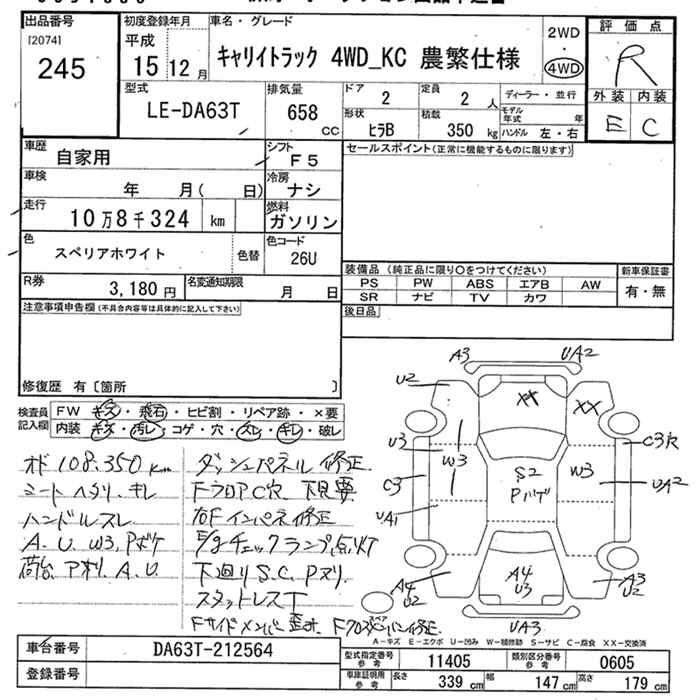 出品番号
[2074]
245
初度登録年月
平成
15年12月
車名・グレード
キャリイトラック 4WD_KC 農繁仕様
2WD
・
4WD
評価点
R
外装 内装
E C
型式
LE-DA63T
排気量
658
CC
ドア
2
定員
2 人
ディーラー・並行
形状
ヒラB
積載
350 kg
モデル年式 年
ハンドル 左・右
車歴
自家用
シフト
F5
車検
年 月( 日)
冷房
ナシ
走行
10万8千324 km
燃料
ガソリン
色
スペリアホワイト
色替
色コード
26U
R券
3,180円
名変通知期限
月 日
セールスポイント(正常に機能するものに限ります)
装備品(純正品に限り○をつけてください)
PS PW ABS エアB AW
SR ナビ TV カワ
新車保証書
有・無
後日品
注意事項申告欄(不具合内容等は具体的に記入して下さい)
修復歴 有〔箇所 〕
検査員記入欄
FW キズ・飛石・ヒビ割・リペア跡・×要
内装 キズ・汚レ・コゲ・穴・スレ・キレ・破レ
108,350km
シートヘタリ、キレ
ハンドルスレ
A.U.W3,Pボケ
荷台 A.U
ダッシュパネル修正
FフロアC穴 下見要
右Fインパネ修正
E/gチェックランプ点灯
下廻りS.C.Pヌリ
スタットレスT
Fサイドメンバー歪
A3
UA2
U2
XX
XX
U3
W3
C3
UA1
S2
Pハゲ
W3
UA2
A4
U2
A4
U3
A3
U2
UA3
A-キズ E-エクボ U-凹み W-補修跡 S-サビ C-腐食 XX-交換済
車台番号
DA63T-212564
登録番号
型式指定番号
参考
11405
類別区分番号
参考
0605
車庫証明用
参考
長さ
339 cm
幅
147 cm
高さ
179 cm